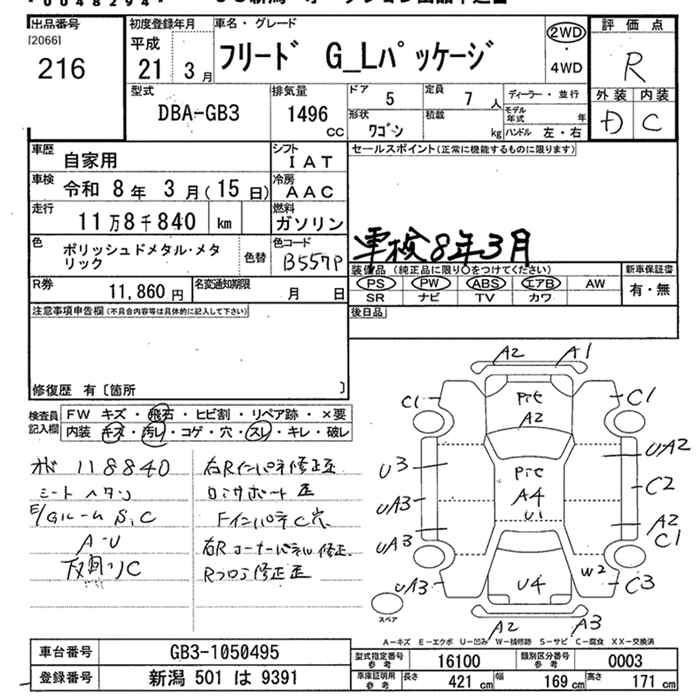 00482947
出品番号 初度登録年月 車名・グレード 評価点
[2066] 216
平成 21 3月
フリード G_Lパッケージ
2WD ・ 4WD
R
型式 DBA-GB3
排気量 1496 CC
ドア 5 定員 7 人
形状 ワゴン 積載 kg
ディーラー・並行
モデル年式 年
ハンドル 左・右
外装 内装
D C
車歴 自家用
シフト IAT
セールスポイント(正常に機能するものに限ります)
車検 令和 8年 3月(15日)
冷房 AAC
走行 11万8千840 km
燃料 ガソリン
車検8年3月
色 ポリッシュドメタル・メタリック 色替
色コード B557P
装備品 (純正品に限り〇をつけてください) 新車保証書
PS PW ABS エアB AW 有・無
SR ナビ TV カワ
R券 11,860円 名変通知期限 月 日
注意事項申告欄(不具合内容等は具体的に記入して下さい)
後日品
修復歴 有〔箇所 〕
検査員記入欄
FW キズ・飛石・ヒビ割・リペア跡・×要
内装 キズ・汚レ・コゲ・穴・スレ・キレ・破レ
118840
右Rインパネ修正歪
シートヘタリ
ロアサポート歪
E/GルームS,C
FインパネC穴
A-U
右Rコーナーパネル修正
下廻りC
Rフロア修正歪
A2 A1
C1 Pte C1
A2
U3 UA2
Pte
UA3 A4 C2
U1
UA3 A2 C1
W2
UA3 U4 C3
A2 A3
スペア
A-キズ E-エクボ U-凹み W-補修跡 S-サビ C-腐食 XX-交換済
車台番号 GB3-1050495
登録番号 新潟 501 は 9391
型式指定番号 参考 16100 類別区分番号 参考 0003
車庫証明用 参考 長さ 421 cm 幅 169 cm 高さ 171 cm